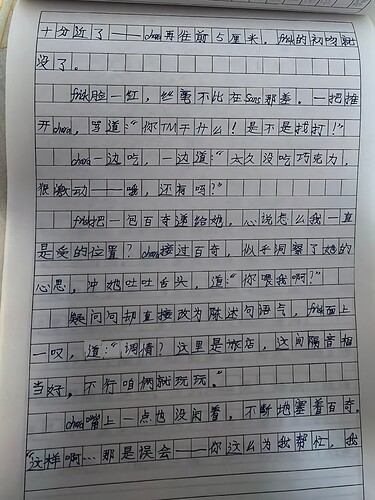 十分近了——chara再往前5厘米，frisk的初吻就
没了。
frisk脸一红，丝毫不比在Sans那差。一把推
开chara，骂道：“你TM干什么！是不是找打！”
chara一边吃，一边道：“太久没吃巧克力，
很激动——哦，还有吗？”
frisk把一包百奇递给她，心说怎么我一直
是受的位置？chara接过百奇，似乎洞察了她的
心思，冲她吐吐舌头，道：“你喂我啊？”
疑问句却直接改为陈述句语气，frisk面上
一叹，道：“调情？这里是旅店，这间隔音相
当好。不行咱俩就玩玩。”
chara嘴上一点也没闲着，不断地塞着百奇。
“这样啊…那是误会——你这么为我帮忙，我